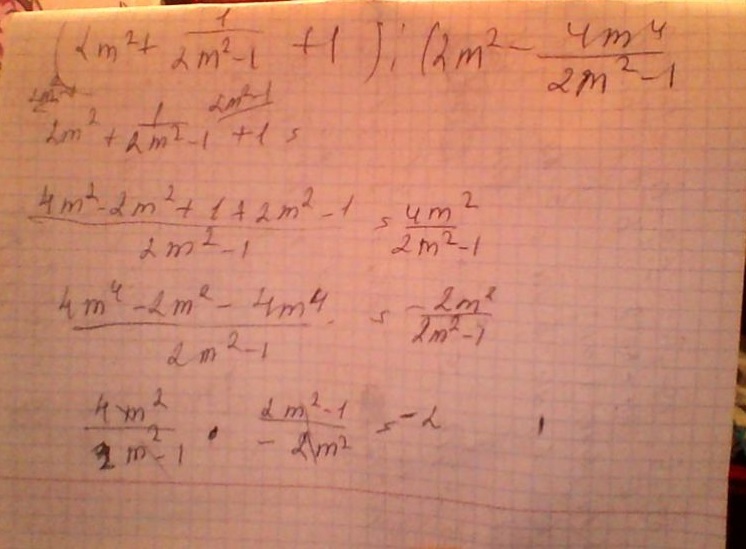 (2m² + 1/(2m²-1) + 1) : (2m² - 4m⁴/(2m²-1)
2m² + 1/(2m²-1) + 1 =
2m²-1
(4m²-2m²+1+2m²-1)/(2m²-1) = 4m²/(2m²-1)
(4m⁴-2m²-4m⁴)/(2m²-1) = -2m²/(2m²-1)
4m²/(2m²-1) · (2m²-1)/(-2m²) = -2